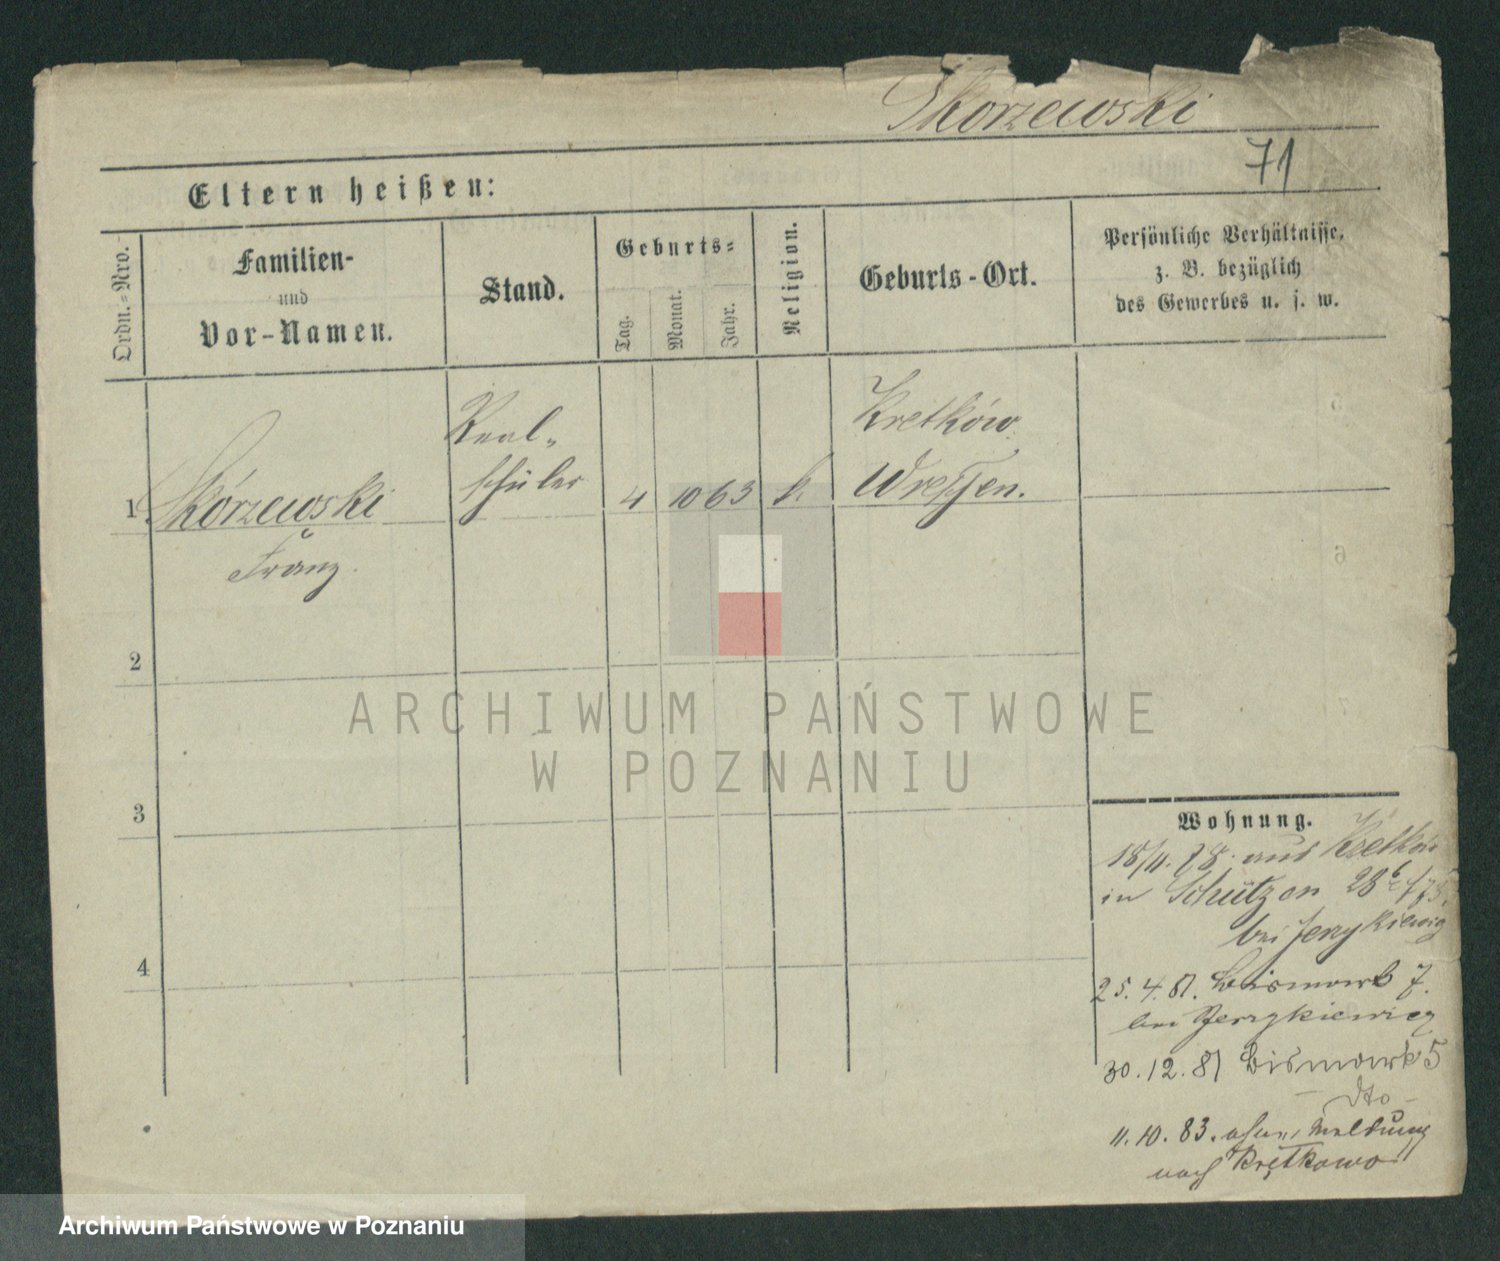 Skorzewski
71
Eltern heißen:
Ordn.=Nro.
Familien-
und
Vor-Namen.
Stand.
Geburts=
Tag.
Monat.
Jahr.
Religion.
Geburts-Ort.
Persönliche Verhältnisse,
z. B. bezüglich
des Gewerbes u. s. w.
1
Skórzewski
Franz.
Real-
schüler
4
10
63
k.
Kretków
Wreschen.
2
3
4
Wohnung.
18/11. 78. aus Kretków
in Schützen 28b
bei Jerzykiewicz
25. 4. 81. Bismark 7.
bei Jerzykiewicz
30. 12. 81 Bismark 5
- dto -
11. 10. 83. ohne Meldung
nach Krętkowo
ARCHIWUM PAŃSTWOWE
W POZNANIU
Archiwum Państwowe w Poznaniu